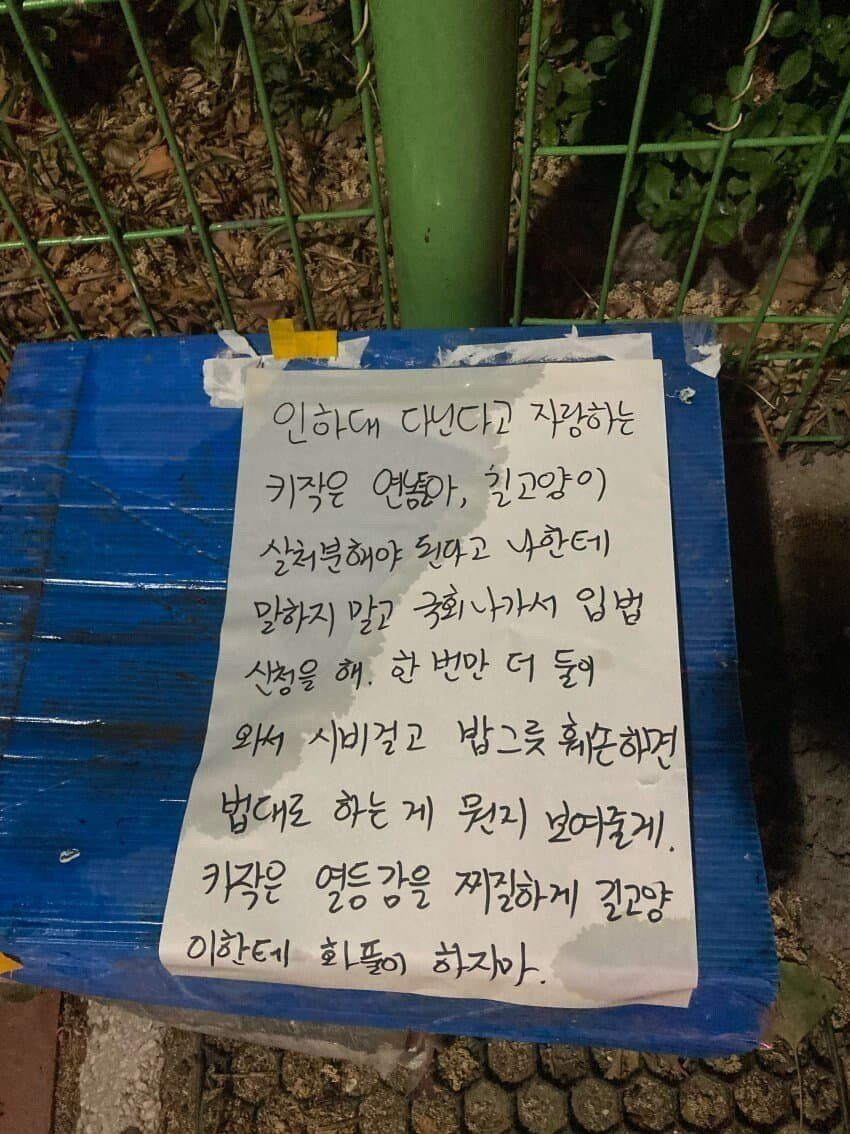 인하대 다닌다고 자랑하는
키작은 연놈아, 길고양이
살처분해야 된다고 나한테
말하지 말고 국회나가서 입법
신청을 해. 한 번만 더 둘이
와서 시비걸고 밥그릇 훼손하면
법대로 하는 게 뭔지 보여줄게.
키작은 열등감을 찌질하게 길고양
이한테 화풀이 하지마.